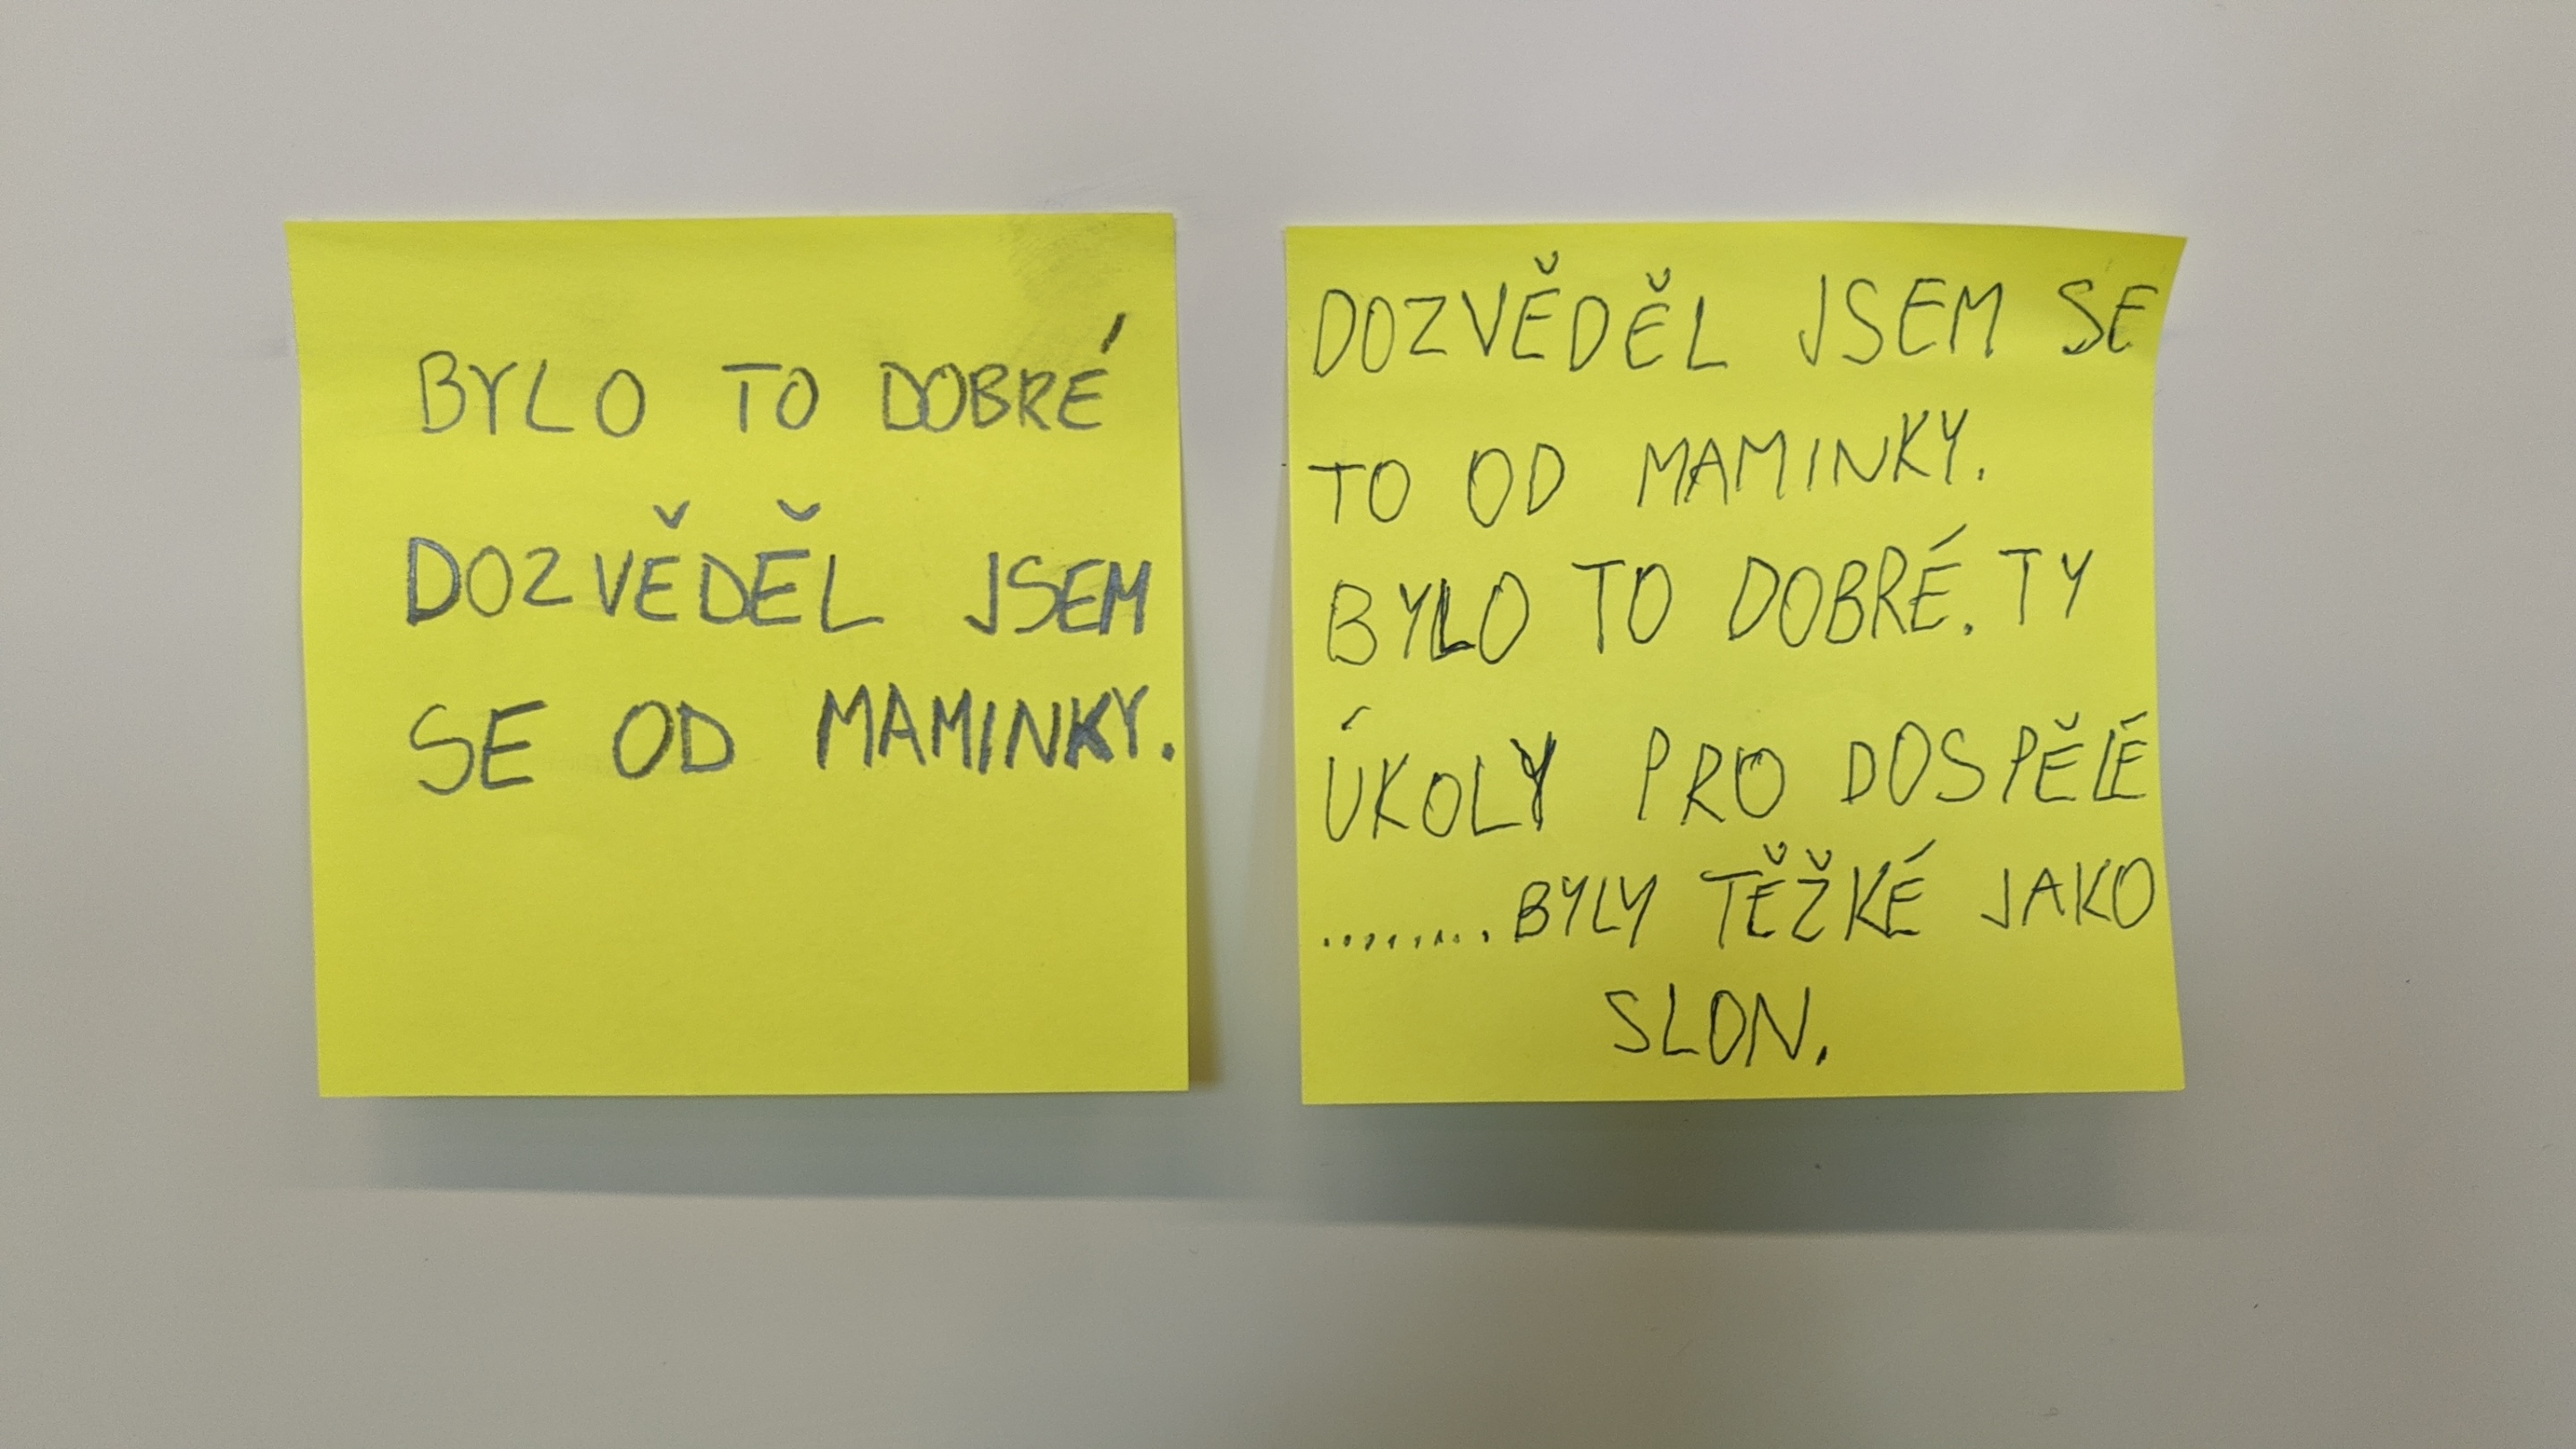 BYLO TO DOBRÉ
DOZVĚDĚL JSEM
SE OD MAMINKY.
DOZVĚDĚL JSEM SE
TO OD MAMINKY.
BYLO TO DOBRÉ. TY
ÚKOLY PRO DOSPĚLÉ
.........BYLY TĚŽKÉ JAKO
SLON.